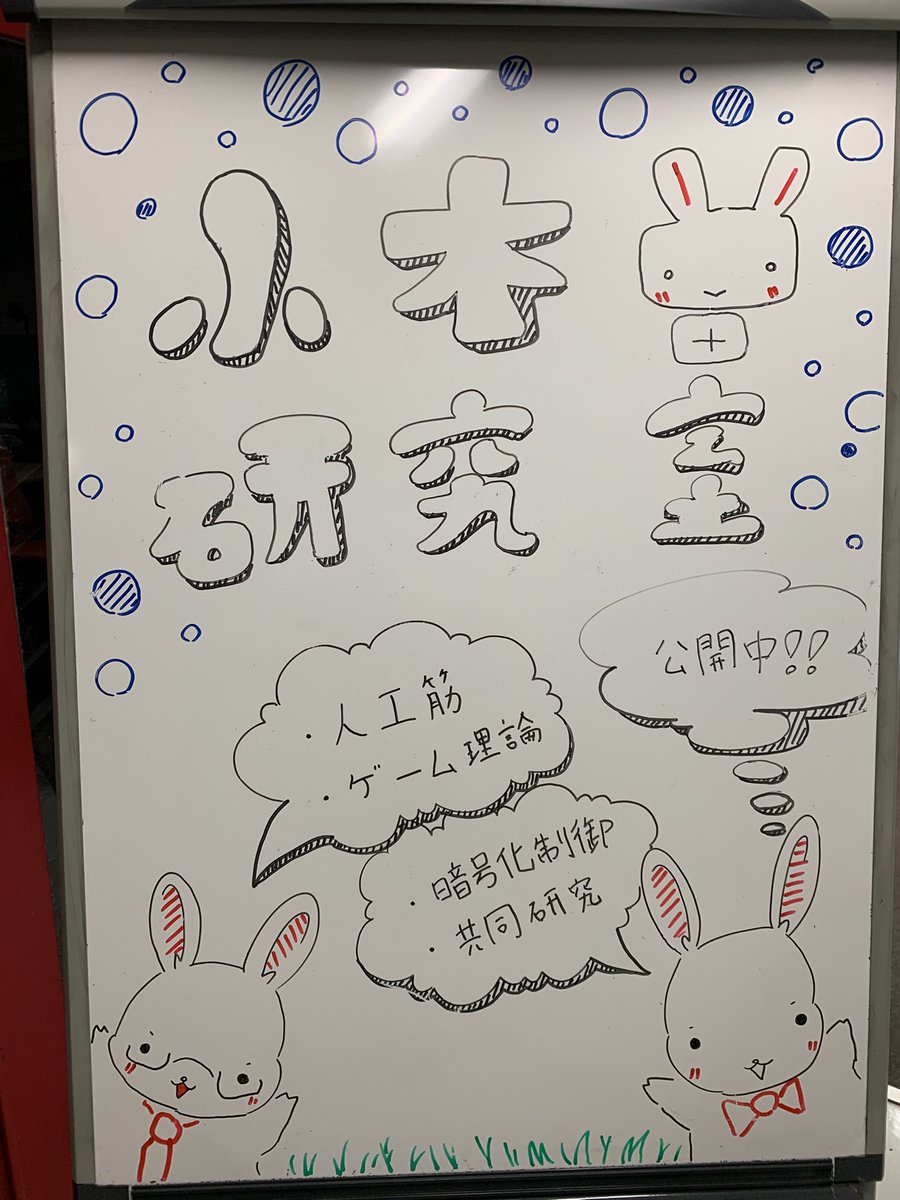 小木
研究室
公開中!!
・人工筋
・ゲーム理論
・暗号化制御
・共同研究